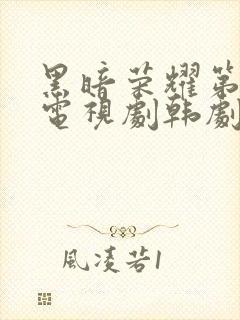 黑暗荣耀第
電視劇韩劇
風凌若1